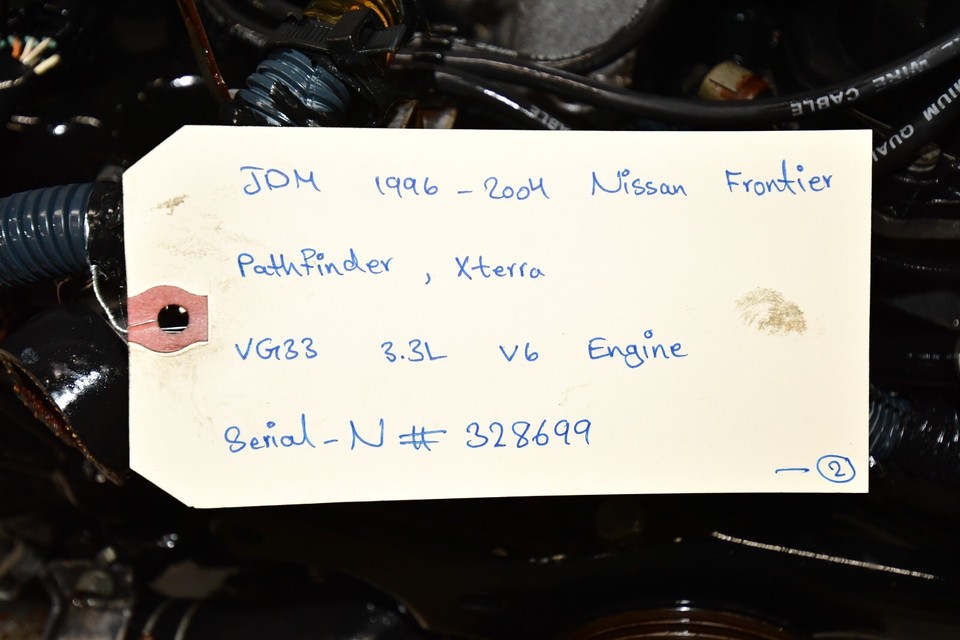 WIRE CABLE
MIUM QUAL
JDM 1996-2004 Nissan Frontier
Pathfinder, Xterra
VG33 3.3L V6 Engine
Serial-N# 328699
— 2